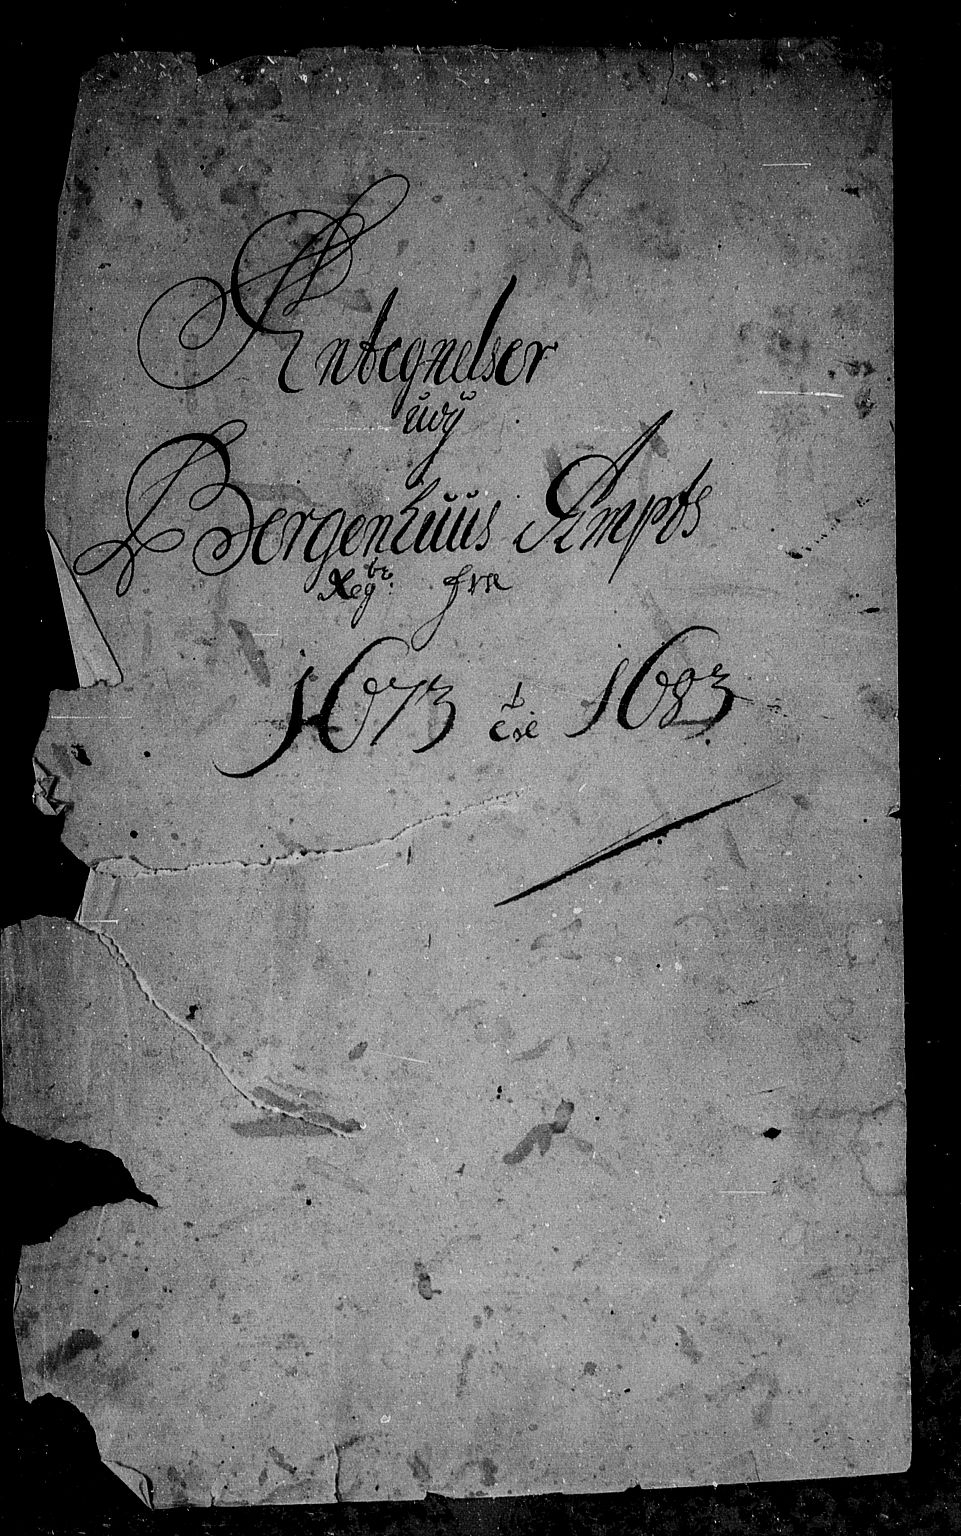 Antegnelser
udÿ
Bergenhuus Ampts
Reg:br fra
1673 til 1683